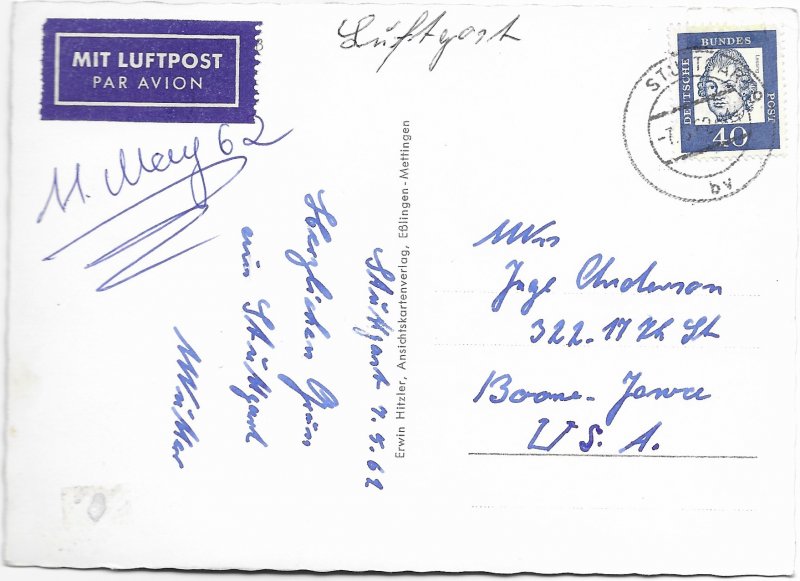 MIT LUFTPOST
PAR AVION
Luftpost
DEUTSCHE
BUNDES
POST
40
STUTTGART 9
-7.5.62
bv
11. May 62
Stuttgart 7.5.62
Herzlichen Gruss
ein Stuttgart
Mutter
Erwin Hitzler, Ansichtskartenverlag, Eßlingen-Mettingen
Mrs
Inge Anderson
322-17th St
Boone-Jowa
U.S.A.